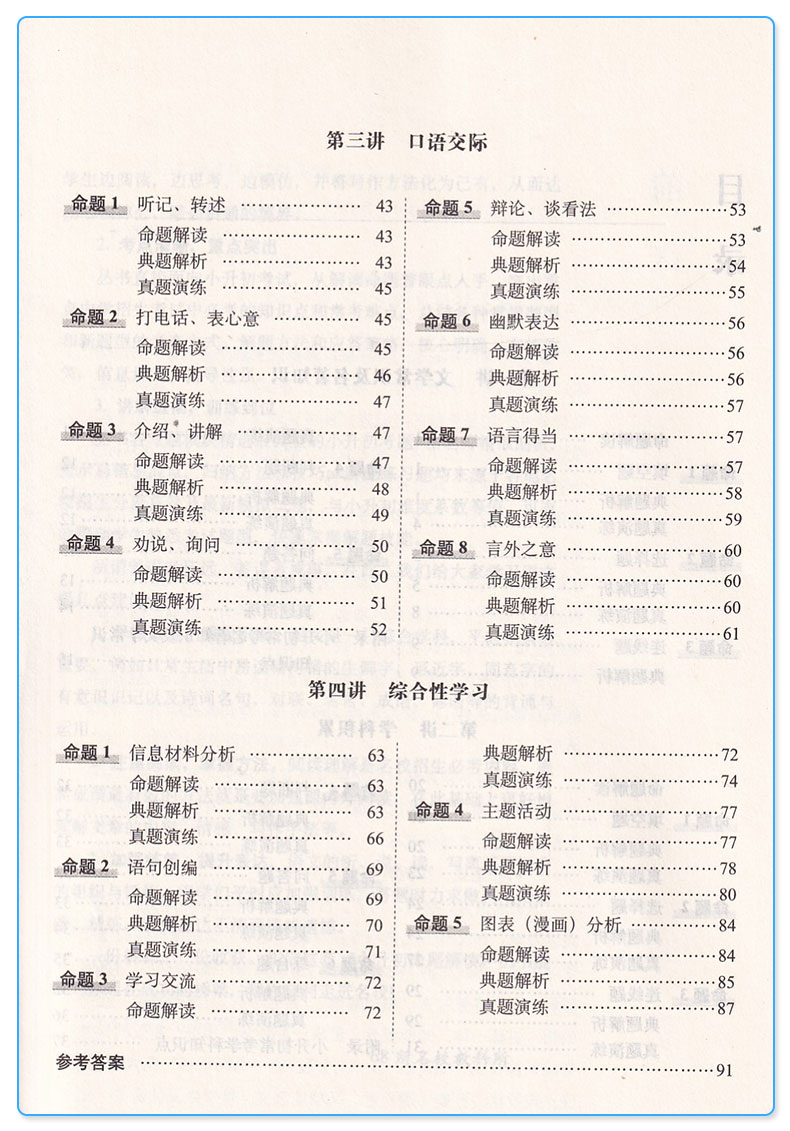 第三讲 口语交际
命题1 听记、转述 …… 43
命题解读 …… 43
典题解析 …… 43
真题演练 …… 45
命题2 打电话、表心意 …… 45
命题解读 …… 45
典题解析 …… 46
真题演练 …… 47
命题3 介绍、讲解 …… 47
命题解读 …… 47
典题解析 …… 48
真题演练 …… 49
命题4 劝说、询问 …… 50
命题解读 …… 50
典题解析 …… 51
真题演练 …… 52
命题5 辩论、谈看法 …… 53
命题解读 …… 53
典题解析 …… 54
真题演练 …… 55
命题6 幽默表达 …… 56
命题解读 …… 56
典题解析 …… 56
真题演练 …… 57
命题7 语言得当 …… 57
命题解读 …… 57
典题解析 …… 58
真题演练 …… 59
命题8 言外之意 …… 60
命题解读 …… 60
典题解析 …… 60
真题演练 …… 61
第四讲 综合性学习
命题1 信息材料分析 …… 63
命题解读 …… 63
典题解析 …… 63
真题演练 …… 66
命题2 语句创编 …… 69
命题解读 …… 69
典题解析 …… 70
真题演练 …… 71
命题3 学习交流 …… 72
命题解读 …… 72
典题解析 …… 72
真题演练 …… 74
命题4 主题活动 …… 77
命题解读 …… 77
典题解析 …… 78
真题演练 …… 80
命题5 图表（漫画）分析 …… 84
命题解读 …… 84
典题解析 …… 85
真题演练 …… 87
参考答案 …… 91